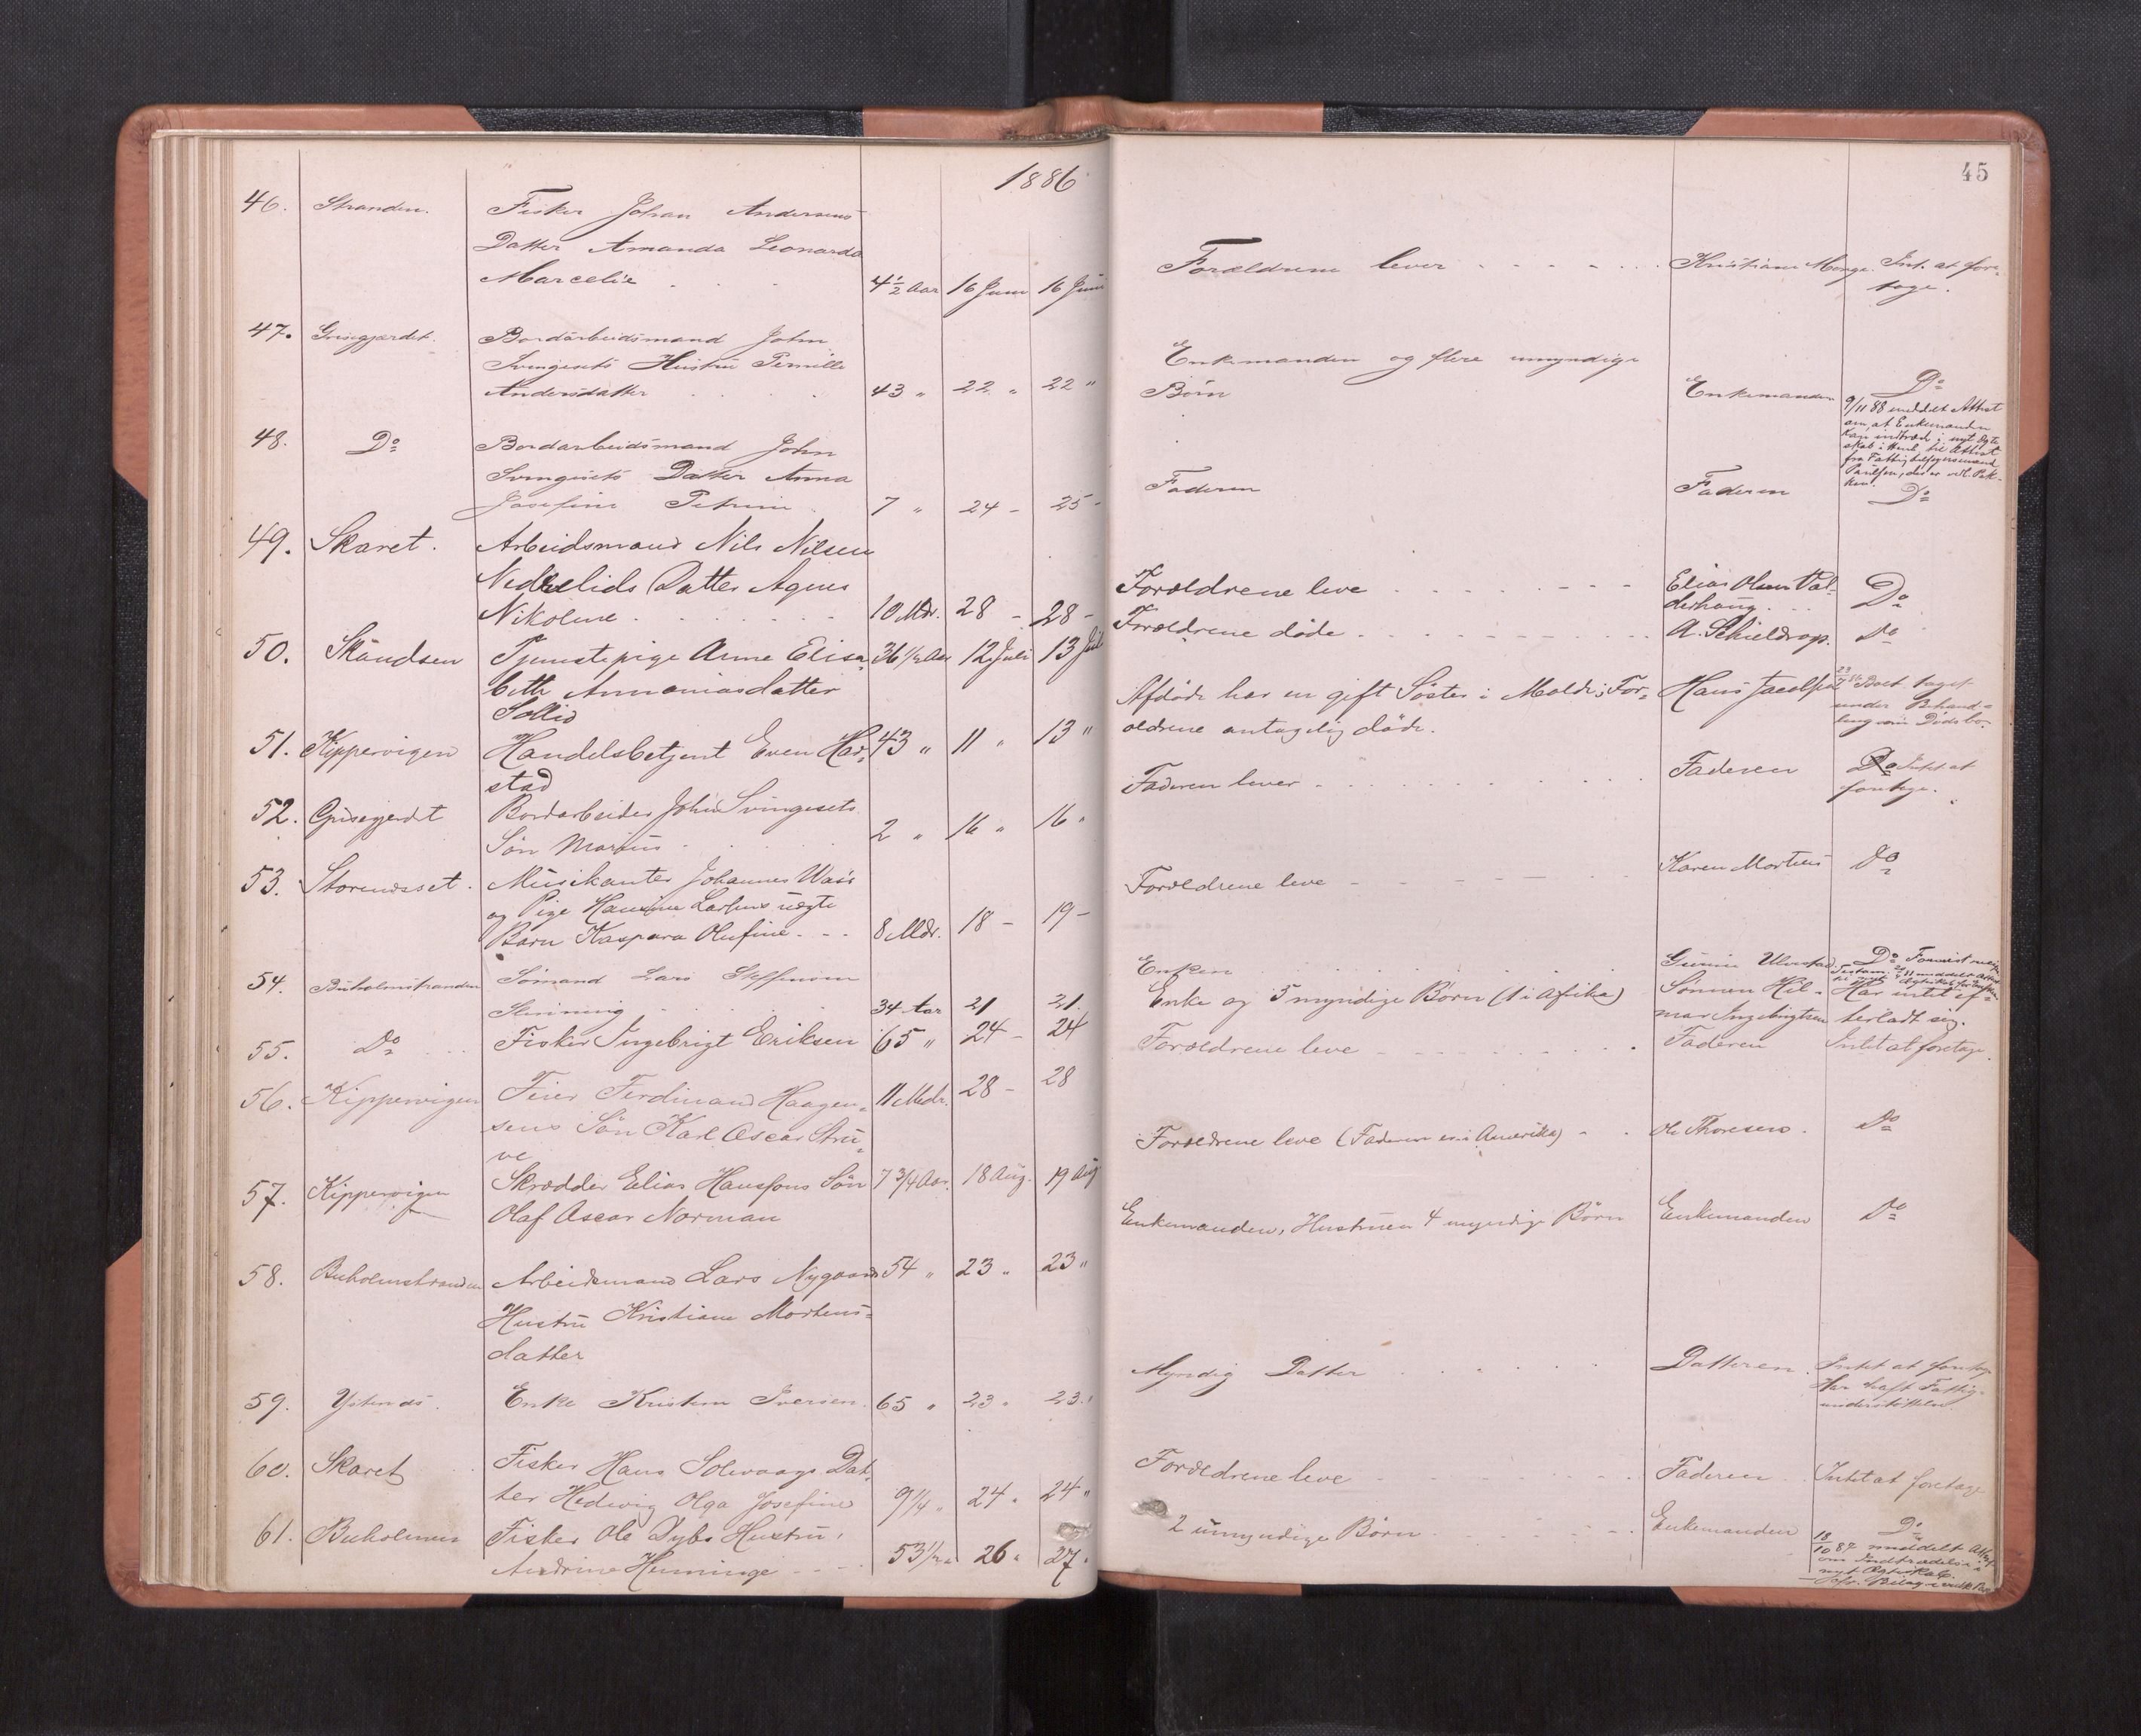 1886
46. Stranden. Fisker Johan Andersens
Datter Amanda Leonarda
Marcelie 4½ Aar 16 Juni 16 Juni
47. Grisegjærdet. Bordarbeidsmand John
Svingesets Hustru Pernille
Andersdatter 43 " 22 " 22 "
48. Do Bordarbeidsmand John
Svingesets Datter Anna
Josefine Petrine 7 " 24 - 25 -
49. Skaret. Arbeidsmand Nils Nilsen
Nedrelids Datter Agnes
Nikoline 10 Mdr. 28 - 28 -
50. Tjenestepige Anne Elisa- 36 1/2 Aar 12 Juli 13 Juli
beth Annaniasdatter
Sollid
51. Kippervigen Handelsbetjent Even Har- 43 " 11 " 13 "
stad
52. Grisegjerdet Bordarbeider John Svingesets
Søn Marius 2 " 16 " 16 "
53. Musikanter Johannes
og Pige uægte
Barn Kaspara Olufine 8 Mdr. 18 - 19 -
54. Buholmstranden Sømand Lars Steffensen
34 Aar 21 21
55. Do Fisker Ingebrigt Eriksen 65 " 24 - 24
56. Kippervigen Feier Ferdinand Haagen- 11 Mdr. 28 - 28
sens Søn Karl Oscar Stru-
ve
57. Kippervigen Skrædder Elias Hansens Søn 7 3/4 Aar. 18 Aug. 19 Aug
Olaf Oscar Norman
58. Buholmstranden Arbeidsmand Lars Nygaards 54 " 23 " 23 "
Hustru Kristiane Mortens-
datter
59. Enke Kristine Iversen 65 " 23 " 23 "
60. Skaret Fisker Hans Solevaags Dat-
ter Hedevig Olga Josefine 9 1/4 " 24 " 24 "
61. Buholmen Fisker Ole Dybs Hustru
Andrine 53 1/2 " 26 " 27 "
45
Forældrene lever Kristiane Monge. Int. at fore-
tage.
Enkemanden og flere umyndige
Børn Enkemanden Do
9/11 88 meddelt Attest
om, at Enkemanden
kan indtræde i nyt Egte-
skab i Henh. til Attest
fra Fattig
Faderen Faderen Do
Forældrene leve Elias Olsen Val-
derhaug. Do
Forældrene døde A. Schieldrop. Do
Afdøde har en gift Søster i Molde; For- Hans Jacobsen Boet taget
ældrene antagelig døde. under Behand-
ling som Dødsbo.
Faderen lever Faderen Do Intet at
foretage.
Forældrene leve Karen Mortens Do
Enken Gunner Ulvestad. Do
Enke og 5 myndige Børn (1 i Afrika) Sønnen Hil- Har intet ef-
mar Ingebrigtsen terladt sig.
Forældrene leve Faderen Intet at foretage.
Forældrene leve (Faderen er i Amerika) Ole Thoresen. Do
Enkemanden, Hustruen 4 myndige Børn Enkemanden Do
Myndig Datter Datteren Intet at foretage
Har havt Fattig-
understøttelse.
Forældrene leve Faderen Intet at foretage
2 umyndige Børn Enkemanden Do
18/10 87 meddelt Attest
om Indtrædelse i
nyt Egteskab.